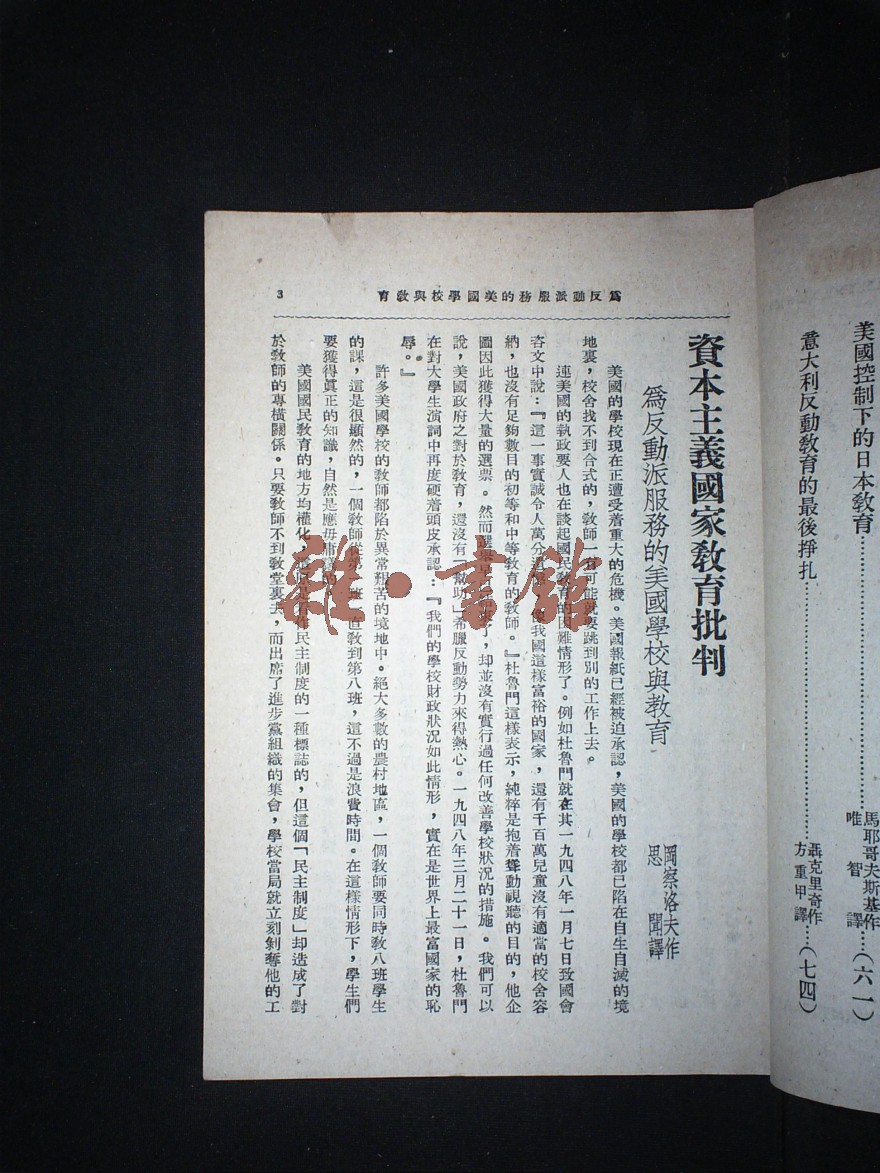 美國控制下的日本教育⋯⋯馬耶哥夫斯基作 唯智譯⋯⋯(六一)
意大利反動教育的最後掙扎⋯⋯聶克里奇作 方重甲譯⋯⋯(七四)
爲反動派服務的美國學校與教育
3
資本主義國家教育批判
爲反動派服務的美國學校與教育
岡察洛夫作
思聞譯
美國的學校現在正遭受着重大的危機。美國報紙已經被迫承認，美國的學校都已陷在自生自滅的境
地裏，校舍找不到合式的，教師一有可能就要跳到別的工作上去。
連美國的執政要人也在談起國民教育的困難情形了。例如杜魯門就在其一九四八年一月七日致國會
咨文中說：『這一事實誠令人萬分遺憾，像我國這樣富裕的國家，還有千百萬兒童沒有適當的校舍容
納，也沒有足夠數目的初等和中等教育的教師。』杜魯門這樣表示，純粹是抱着聳動視聽的目的，他企
圖因此獲得大量的選票。然而選舉早已，却並沒有實行過任何改善學校狀況的措施。我們可以
說，美國政府之對於教育，還沒有「幫助」希臘反動勢力來得熱心。一九四八年三月二十一日，杜魯門
在對大學生演詞中再度硬着頭皮承認：『我們的學校財政狀況如此情形，實在是世界上最富國家的恥
辱。』
許多美國學校的教師都陷於異常艱苦的境地中。絕大多數的農村地區，一個教師要同時教八班學生
的課，這是很顯然的，一個教師從第一班一直教到第八班，這不過是浪費時間。在這樣情形下，學生們
要獲得眞正的知識，自然是應毋庸議的。
美國國民教育的地方均權化，民主制度的一種標誌的，但這個「民主制度」却造成了對
於教師的專橫關係。只要教師不到教堂裏去，而出席了進步黨組織的集會，學校當局就立刻剝奪他的工
雜·書館